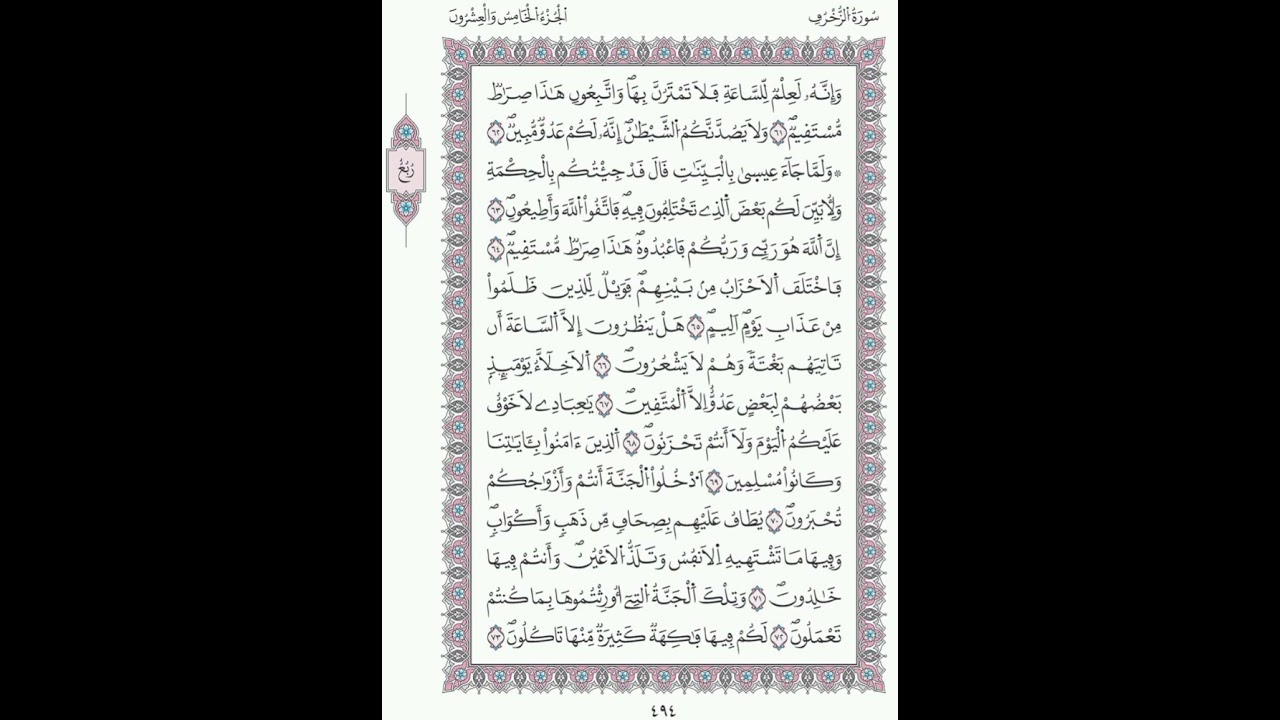 سُورَةُ الزُّخْرُفِ
الْجُزْءُ الْخَامِسُ وَالْعِشْرُونَ
وَإِنَّهُۥ لَعِلْمٞ لِّلسَّاعَةِ فَلَا تَمْتَرُنَّ بِهَاۖ وَاتَّبِعُونِ هَٰذَا صِرَٰطٞ
مُّسْتَقِيمٞۖ ٦١ وَلَا يَصُدَّنَّكُمُ الشَّيْطَٰنُۖ إِنَّهُۥ لَكُمْ عَدُوّٞ مُّبِينٞۖ ٦٢
۞ وَلَمَّا جَآءَ عِيسىٰ بِالْبَيِّنَٰتِ قَالَ قَدْ جِئْتُكُم بِالْحِكْمَةِ
وَلِأُبَيِّنَ لَكُم بَعْضَ اَلذِے تَخْتَلِفُونَ فِيهِۖ فَاتَّقُواْ اللَّهَ وَأَطِيعُونِۖ ٦٣
إِنَّ اَللَّهَ هُوَ رَبِّے وَرَبُّكُمْ فَاعْبُدُوهُۖ هَٰذَا صِرَٰطٞ مُّسْتَقِيمٞۖ ٦٤
فَاخْتَلَفَ اَلَاحْزَابُ مِنۢ بَيْنِهِمْۖ فَوَيْلٞ لِّلذِينَ ظَلَمُواْ
مِنْ عَذَابِ يَوْمٍ اَلِيمٍۖ ٦٥ هَلْ يَنظُرُونَ إِلَّا اَلسَّاعَةَ أَن
تَاتِيَهُم بَغْتَةٗ وَهُمْ لَا يَشْعُرُونَۖ ٦٦ اَلَاخِلَّآءُ يَوْمَئِذِۢ
بَعْضُهُمْ لِبَعْضٍ عَدُوٌّ اِلَّا اَلْمُتَّقِينَۖ ٦٧ يَٰعِبَادِے لَا خَوْفٌ
عَلَيْكُمُ اُلْيَوْمَ وَلَآ أَنتُمْ تَحْزَنُونَۖ ٦٨ اَلذِينَ ءَامَنُواْ بِـَٔايَٰتِنَا
وَكَانُواْ مُسْلِمِينَ ٦٩ اَدْخُلُواْ اُلْجَنَّةَ أَنتُمْ وَأَزْوَٰجُكُمْ
تُحْبَرُونَۖ ٧٠ يُطَافُ عَلَيْهِم بِصِحَافٖ مِّن ذَهَبٖ وَأَكْوَابٖۖ
وَفِيهَا مَا تَشْتَهِيهِ اِلَانفُسُ وَتَلَذُّ اُلَاعْيُنُۖ وَأَنتُمْ فِيهَا
خَٰلِدُونَۖ ٧١ وَتِلْكَ اَلْجَنَّةُ اُلتِےٓ أُورِثْتُمُوهَا بِمَا كُنتُمْ
تَعْمَلُونَۖ ٧٢ لَكُمْ فِيهَا فَٰكِهَةٞ كَثِيرَةٞ مِّنْهَا تَاكُلُونَۖ ٧٣
رُبْعُ
٤٩٤